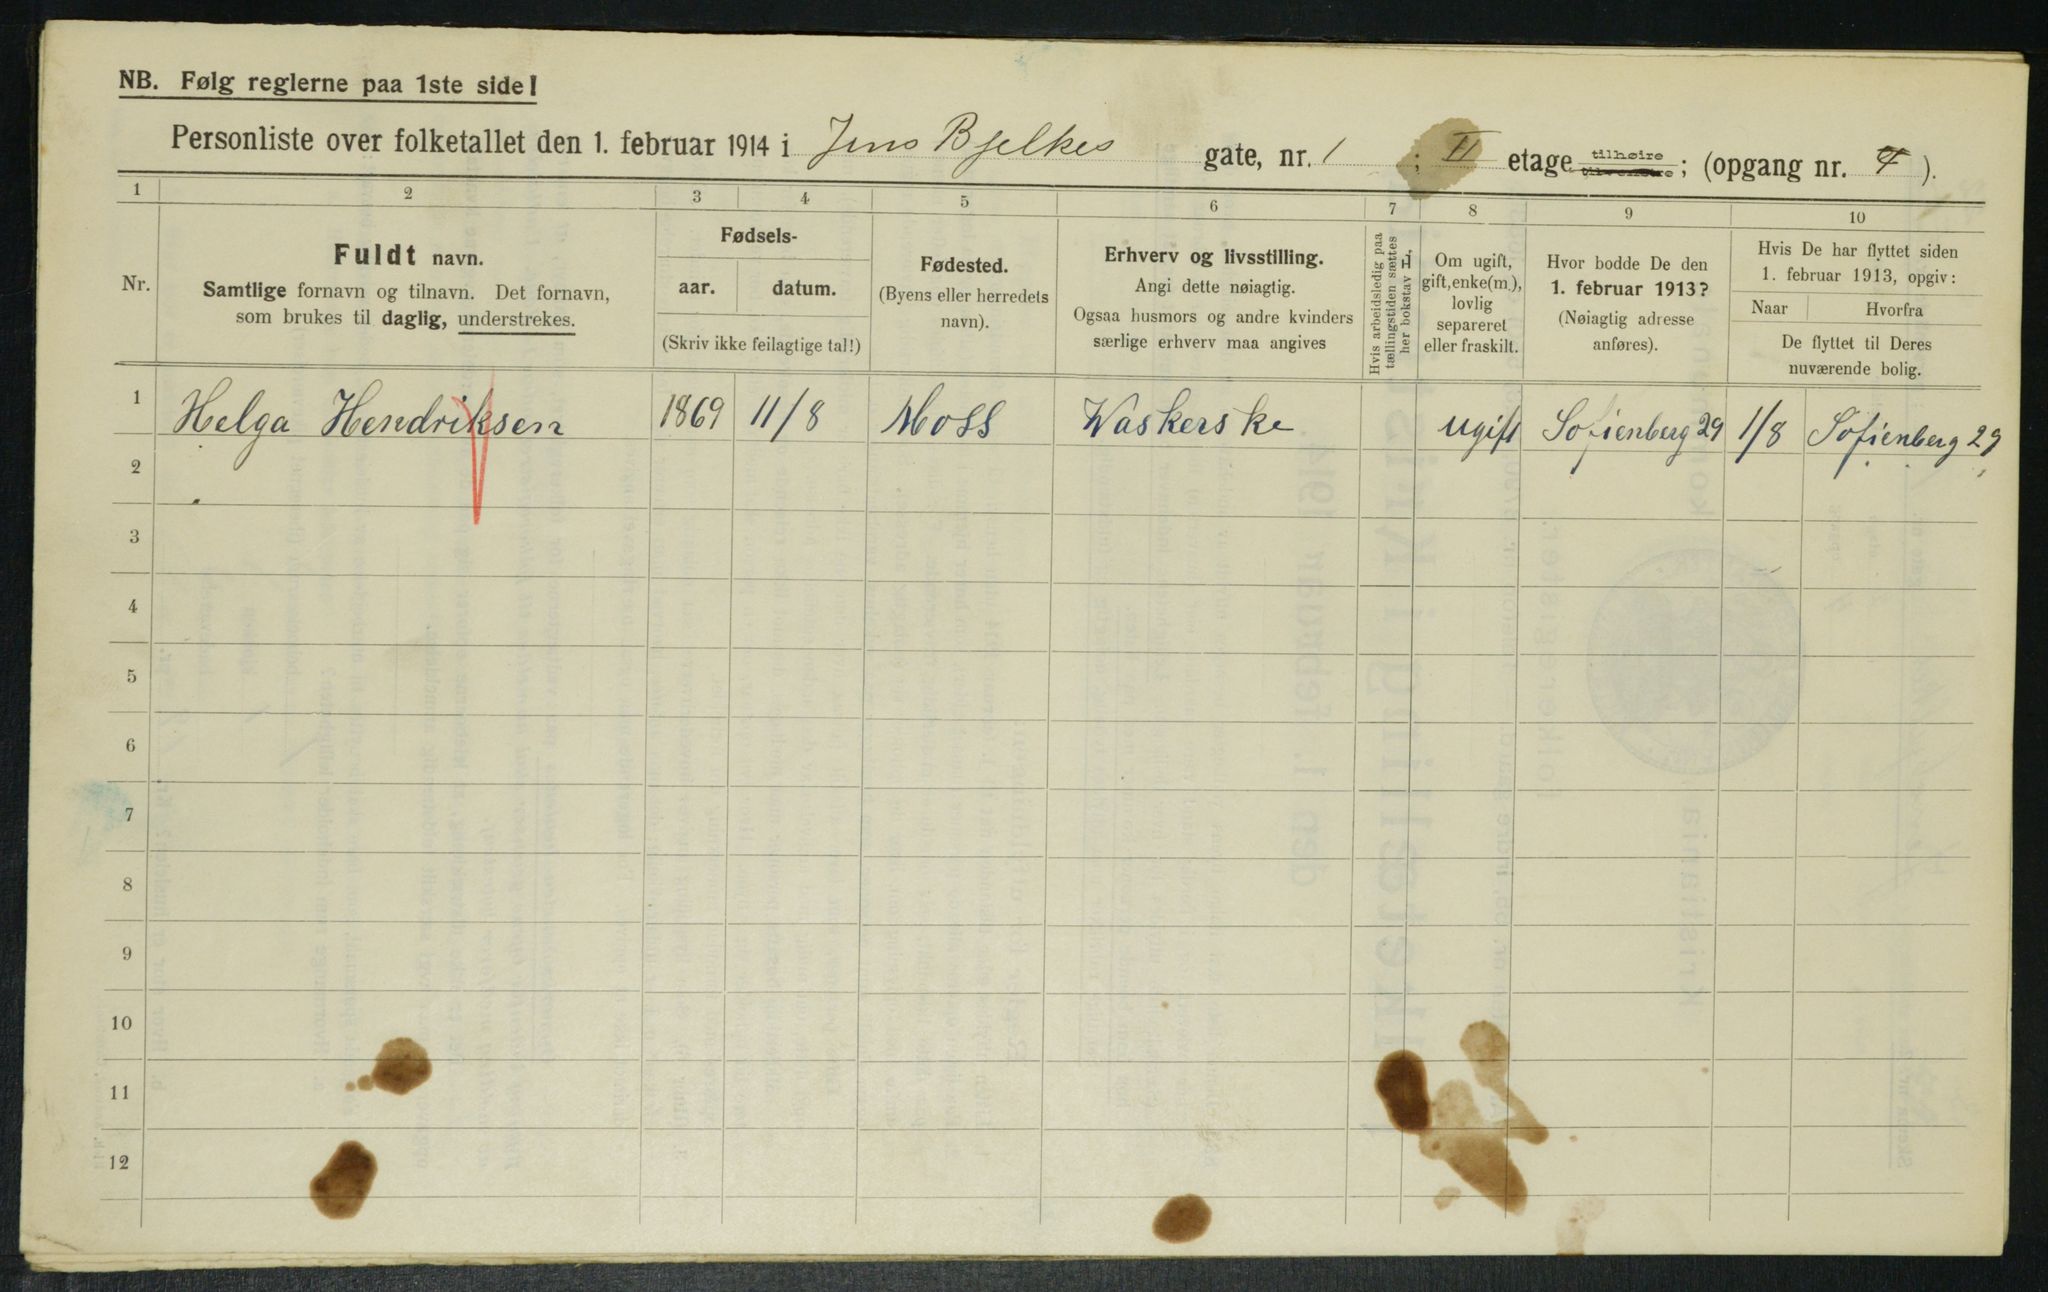 NB. Følg reglerne paa 1ste side!
Personliste over folketallet den 1. februar 1914 i Jens Bjelkes gate, nr. 1 ; II etage tilhøire tilvenstre ; (opgang nr. 4 ).
1 2 3 4 5 6 7 8 9 10
Nr.
Fuldt navn.
Samtlige fornavn og tilnavn. Det fornavn,
som brukes til daglig, understrekes.
Fødsels-
aar. datum.
(Skriv ikke feilagtige tal!)
Fødested.
(Byens eller herredets
navn).
Erhverv og livsstilling.
Angi dette nøiagtig.
Ogsaa husmors og andre kvinders
særlige erhverv maa angives
Hvis arbeidsledig paa
tællingstiden sættes
her bokstav L.
Om ugift,
gift, enke(m.),
lovlig
separeret
eller fraskilt.
Hvor bodde De den
1. februar 1913?
(Nøiagtig adresse
anføres).
Hvis De har flyttet siden
1. februar 1913, opgiv:
Naar Hvorfra
De flyttet til Deres
nuværende bolig.
1 Helga Hendriksen 1869 11/8 Moss Waskerske ugift Sofienberg 29 1/8 Sofienberg 29
2
3
4
5
6
7
8
9
10
11
12